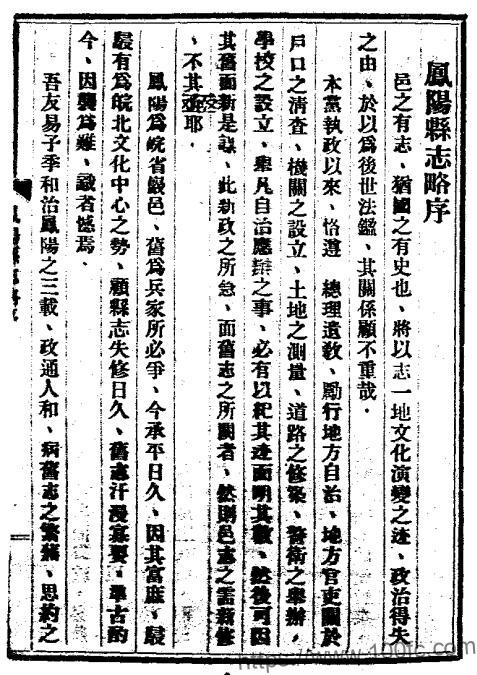 鳳陽縣志略序
邑之有志、猶國之有史也、將以志一地文化演變之迹、政治得失
之由、於以爲後世法鑑、其關係顧不重哉．
本黨執政以來、恪遵　總理遺敎、勵行地方自治、地方官吏關於
戶口之清查、機關之設立、土地之測量、道路之修築、警衛之舉辦、
學校之設立、舉凡自治應辦之事、必有以紀其迹而明其數、然後可因
其舊而新是謀、此新政之所急、而舊志之所闕者、然則邑志之需新修
、不其亟耶．
鳳陽爲皖省嚴邑、舊爲兵家所必爭、今承平日久、因其富庶、駸
駸有爲皖北文化中心之勢、顧縣志失修日久、舊志汗漫寡要、畢古酌
今、因襲爲難、識者憾焉．
吾友易子季和治鳳陽之三載、政通人和、病舊志之繁蕪、思約之
https://www.100fc.com